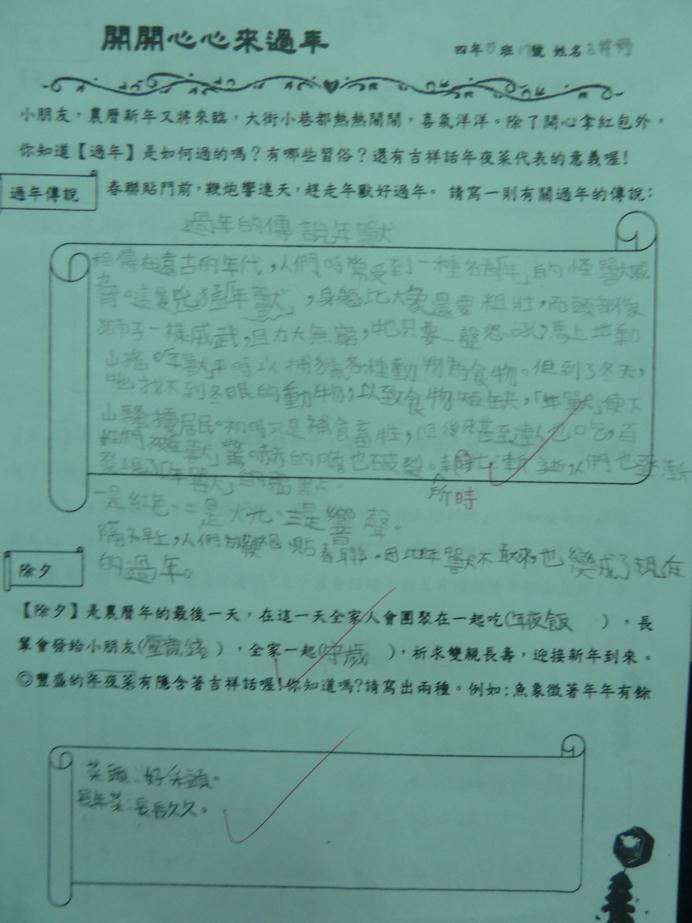 開開心心來過年
四年 班 號 姓名
小朋友，農曆新年又將來臨，大街小巷都熱熱鬧鬧，喜氣洋洋。除了開心拿紅包外，
你知道【過年】是如何過的嗎？有哪些習俗？還有吉祥話年夜菜代表的意義喔！
過年傳說
春聯貼門前，鞭炮響連天，趕走年獸好過年。 請寫一則有關過年的傳說：
過年的傳說年獸
相傳在遠古的年代，人們時常受到一種名為「年」的怪獸威
脅。這隻兇猛「年獸」，身軀比大象還要粗壯，而頭部像
獅子一樣威武，且力大無窮，牠只要一聲怒吼，馬上地動
山搖。「年獸」平時以捕獵各種動物為食物。但到了冬天，
牠找不到冬眠的動物，以致食物短缺，「年獸」便下
山騷擾居民。初時只是補食畜牲，但後來甚至連人也吃，百
姓們被獸驚嚇的 也破裂。 漸漸，人們也漸漸
所時
發現了「年獸」的
一是紅色、二是火光、三是響聲。
隔天早上，人們 貼春聯。因此年獸不敢來，也變成了現在
的過年。
除夕
【除夕】是農曆年的最後一天，在這一天全家人會團聚在一起吃(年夜飯 )，長
輩會發給小朋友(壓歲錢 )，全家一起(守歲 )，祈求雙親長壽，迎接新年到來。
◎豐盛的年夜菜有隱含著吉祥話喔！你知道嗎？請寫出兩種。例如：魚象徵著年年有餘
菜頭：好采頭。
長年菜：長長久久。